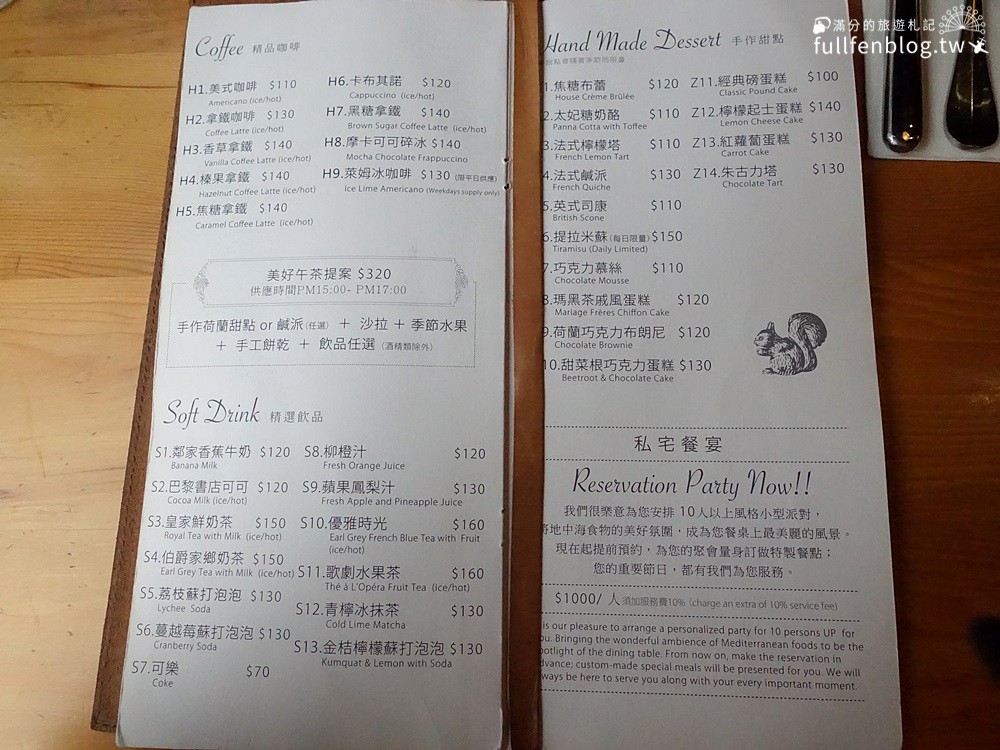 Coffee 精品咖啡
H1.美式咖啡 $110
Americano (ice/hot)
H2.拿鐵咖啡 $130
Coffee Latte (ice/hot)
H3.香草拿鐵 $140
Vanilla Coffee Latte (ice/hot)
H4.榛果拿鐵 $140
Hazelnut Coffee Latte (ice/hot)
H5.焦糖拿鐵 $140
Caramel Coffee Latte (ice/hot)
H6.卡布其諾 $120
Cappuccino (ice/hot)
H7.黑糖拿鐵 $140
Brown Sugar Coffee Latte (ice/hot)
H8.摩卡可可碎冰 $140
Mocha Chocolate Frappuccino
H9.萊姆冰咖啡 $130 (限平日供應)
Ice Lime Americano (Weekdays supply only)
美好午茶提案 $320
供應時間PM15:00- PM17:00
手作荷蘭甜點 or 鹹派(任選) + 沙拉 + 季節水果
+ 手工餅乾 + 飲品任選 (酒精類除外)
Soft Drink 精選飲品
S1.鄰家香蕉牛奶 $120
Banana Milk
S2.巴黎書店可可 $120
Cocoa Milk (ice/hot)
S3.皇家鮮奶茶 $150
Royal Tea with Milk (ice/hot)
S4.伯爵家鄉奶茶 $150
Earl Grey Tea with Milk (ice/hot)
S5.荔枝蘇打泡泡 $130
Lychee Soda
S6.蔓越莓蘇打泡泡 $130
Cranberry Soda
S7.可樂 $70
Coke
S8.柳橙汁 $120
Fresh Orange Juice
S9.蘋果鳳梨汁 $130
Fresh Apple and Pineapple Juice
S10.優雅時光 $160
Earl Grey French Blue Tea with Fruit
(ice/hot)
S11.歌劇水果茶 $160
Thé à L'Opéra Fruit Tea (ice/hot)
S12.青檸冰抹茶 $130
Cold Lime Matcha
S13.金桔檸檬蘇打泡泡 $130
Kumquat & Lemon with Soda
Hand Made Dessert 手作甜點
1.焦糖布蕾 $120
House Crème Brûlée
2.太妃糖奶酪 $110
Panna Cotta with Toffee
3.法式檸檬塔 $110
French Lemon Tart
4.法式鹹派 $130
French Quiche
5.英式司康 $110
British Scone
6.提拉米蘇(每日限量) $150
Tiramisu (Daily Limited)
7.巧克力慕絲 $110
Chocolate Mousse
8.瑪黑茶戚風蛋糕 $120
Mariage Frères Chiffon Cake
9.荷蘭巧克力布朗尼 $120
Chocolate Brownie
10.甜菜根巧克力蛋糕 $130
Beetroot & Chocolate Cake
Z11.經典磅蛋糕 $100
Classic Pound Cake
Z12.檸檬起士蛋糕 $140
Lemon Cheese Cake
Z13.紅蘿蔔蛋糕 $130
Carrot Cake
Z14.朱古力塔 $130
Chocolate Tart
私宅餐宴
Reservation Party Now!!
我們很樂意為您安排 10人以上風格小型派對，
將地中海食物的美好氛圍，成為您餐桌上最美麗的風景。
現在起提前預約，為您的聚會量身訂做特製餐點；
您的重要節日，都有我們為您服務。
$1000/ 人 須加服務費10% (charge an extra of 10% service fee)
is our pleasure to arrange a personalized party for 10 persons UP for
ou. Bringing the wonderful ambience of Mediterranean foods to be the
potlight of the dining table. From now on, make the reservation in
dvance; custom-made special meals will be presented for you. We will
ways be here to serve you along with your every important moment.
滿分的旅遊札記
fullfenblog.tw